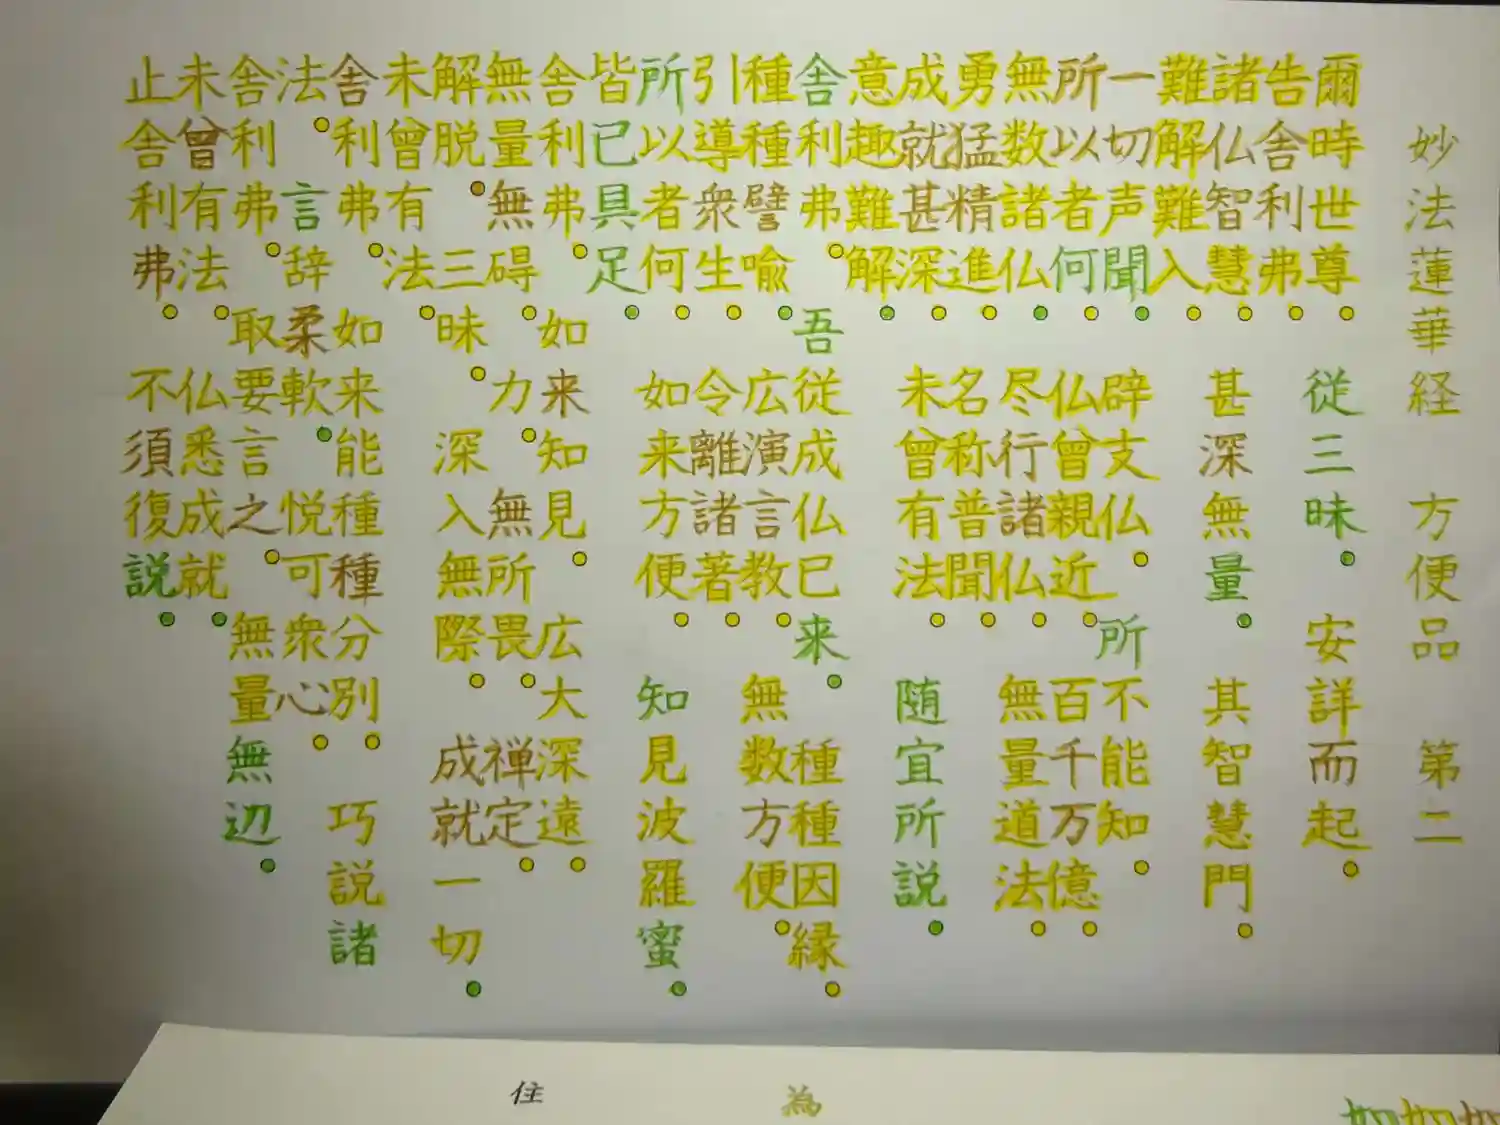 妙法蓮華経 方便品 第二
爾時世尊。従三昧。安詳而起。
告舎利弗。
諸仏智慧。甚深無量。其智慧門。
難解難入。
一切声聞。辟支仏。所不能知。
所以者何。仏曾親近。百千万億。
無数諸仏。尽行諸仏。無量道法。
勇猛精進。名称普聞。
成就甚深。未曾有法。随宜所説。
意趣難解。
舎利弗。吾従成仏已来。種種因縁。
種種譬喩。広演言教。無数方便。
引導衆生。令離諸著。
所以者何。如来方便。知見波羅蜜。
皆已具足。
舎利弗。如来知見。広大深遠。
無量無碍。力。無所畏。禅定。
解脱。三昧。深入無際。成就一切。
未曾有法。
舎利弗。如来能種種分別。巧説諸
法。言辞柔軟。悦可衆心。
舎利弗。取要言之。無量無辺。
未曾有法。仏悉成就。
止舎利弗。不須復説。
為
住